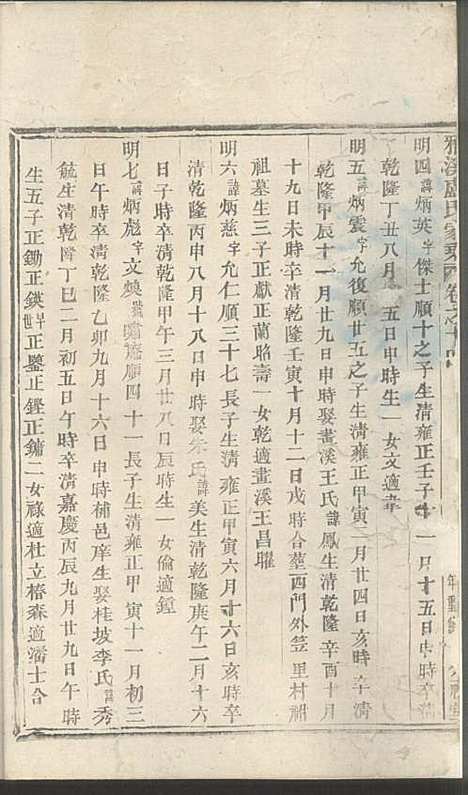 雅溪盧氏家乘 卷之十四
明四諱炳英字傑士順十之子生清雍正壬子十一月十五日申時卒清
乾隆丁丑八月 五日申時生一女文適韋
明五諱炳震字允復順廿五之子生清雍正甲寅二月廿四日亥時卒清
乾隆甲辰十一月廿九日申時娶畫溪王氏諱鳳生清乾隆辛酉十月
十九日未時卒清乾隆壬寅十月十二日戌時合葬西門外笠里村湖
祖墓生三子正獻正蘭昭壽一女乾適畫溪王昌曜
明六諱炳慈字允仁順三十七長子生清雍正甲寅六月十六日亥時卒
清乾隆丙申八月十八日申時娶朱氏諱美生清乾隆庚午二月十六
日子時卒清乾隆甲午三月廿八日辰時生一女倫適鐘
明七諱炳彪字文煥號 順四十一長子生清雍正甲寅十一月初三
日午時卒清乾隆乙卯九月十六日申時補邑庠生娶桂坡李氏諱秀
毓生清乾隆丁巳二月初五日午時卒清嘉慶丙辰九月廿九日午時
生五子正鋤正鍈早世正鑒正鏗正鏞二女祿適杜立椿森適潘士合